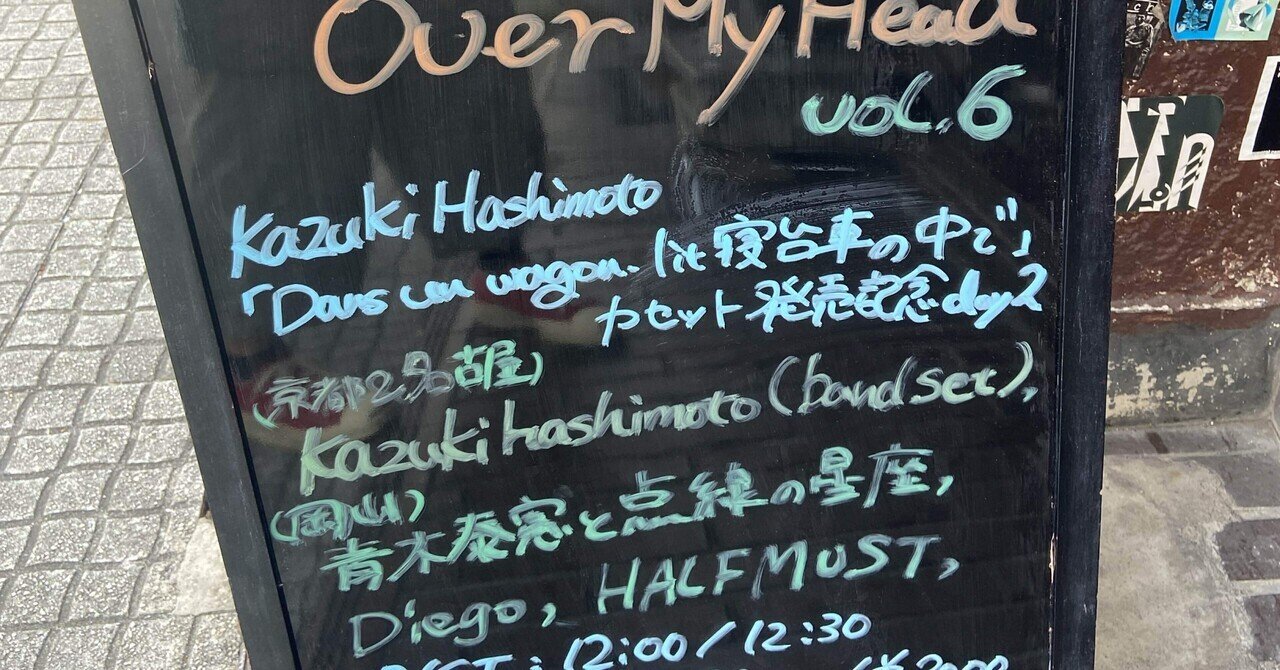 Over My Head
vol.6
Kazuki Hashimoto
「Dans un wagon-lit 寝台車の中で」
カセット発売記念day2
(京都2名古屋)
Kazuki hashimoto (band set),
(岡山)
青木泰憲と点線の星座,
Diego, HALFMUST,
12:00/12:30